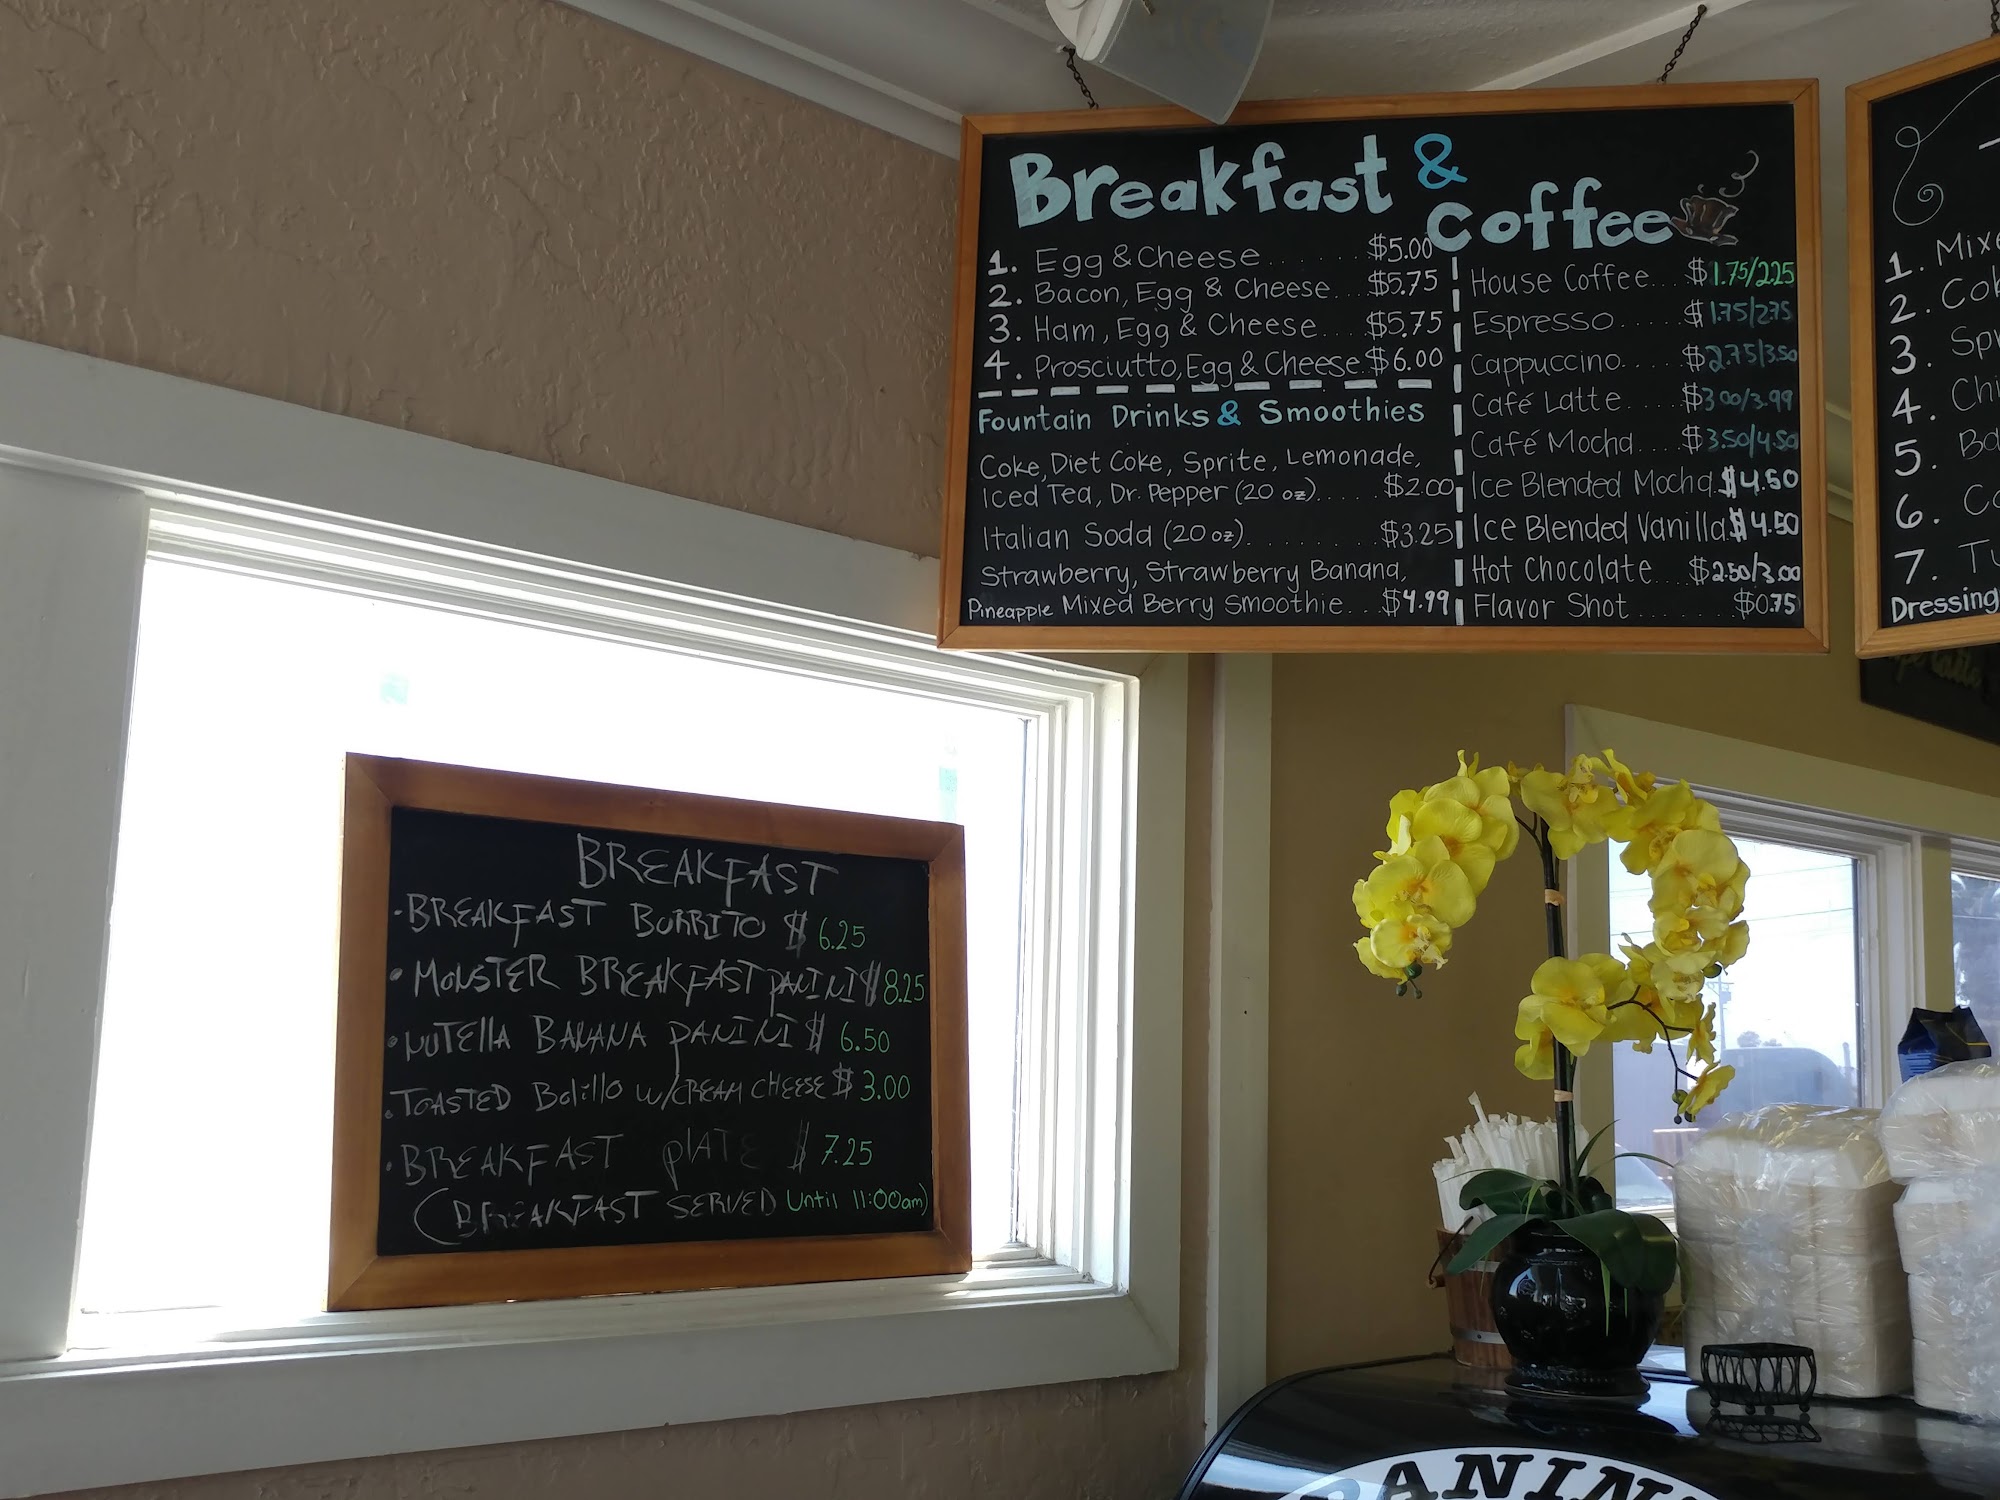 Breakfast &
Coffee
1. Egg & Cheese....... $5.00
2. Bacon, Egg & Cheese... $5.75
3. Ham, Egg & Cheese.... $5.75
4. Prosciutto, Egg & Cheese. $6.00
Fountain Drinks & Smoothies
Coke, Diet Coke, Sprite, Lemonade,
Iced Tea, Dr. Pepper (20 oz)..... $2.00
Italian Soda (20 oz)......... $3.25
Strawberry, Strawberry Banana,
Pineapple Mixed Berry Smoothie... $4.99
House Coffee... $1.75/2.25
Espresso..... $1.75/2.75
Cappuccino.... $2.75/3.50
Café Latte.... $3.00/3.99
Café Mocha.... $3.50/4.50
Ice Blended Mocha. $4.50
Ice Blended Vanilla $4.50
Hot Chocolate... $2.50/3.00
Flavor Shot....... $0.75
1.
2.
3.
4.
5.
6.
7.
Dressing
BREAKFAST
• BREAKFAST BURRITO $ 6.25
• MONSTER BREAKFAST PANINI $ 8.25
• NUTELLA BANANA PANINI $ 6.50
• TOASTED Bolillo w/CREAM CHEESE $ 3.00
• BREAKFAST PLATE $ 7.25
(BREAKFAST SERVED Until 11:00am)